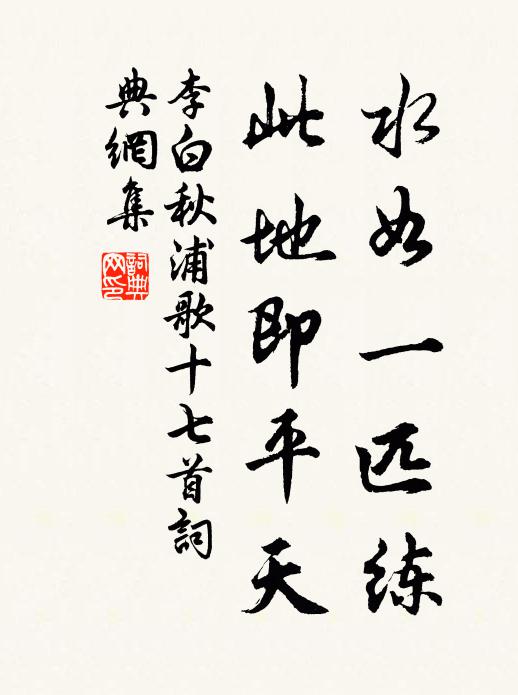 水如一匹练
此地即平天
李白秋浦歌十七首詞
典網集
詞典
网印